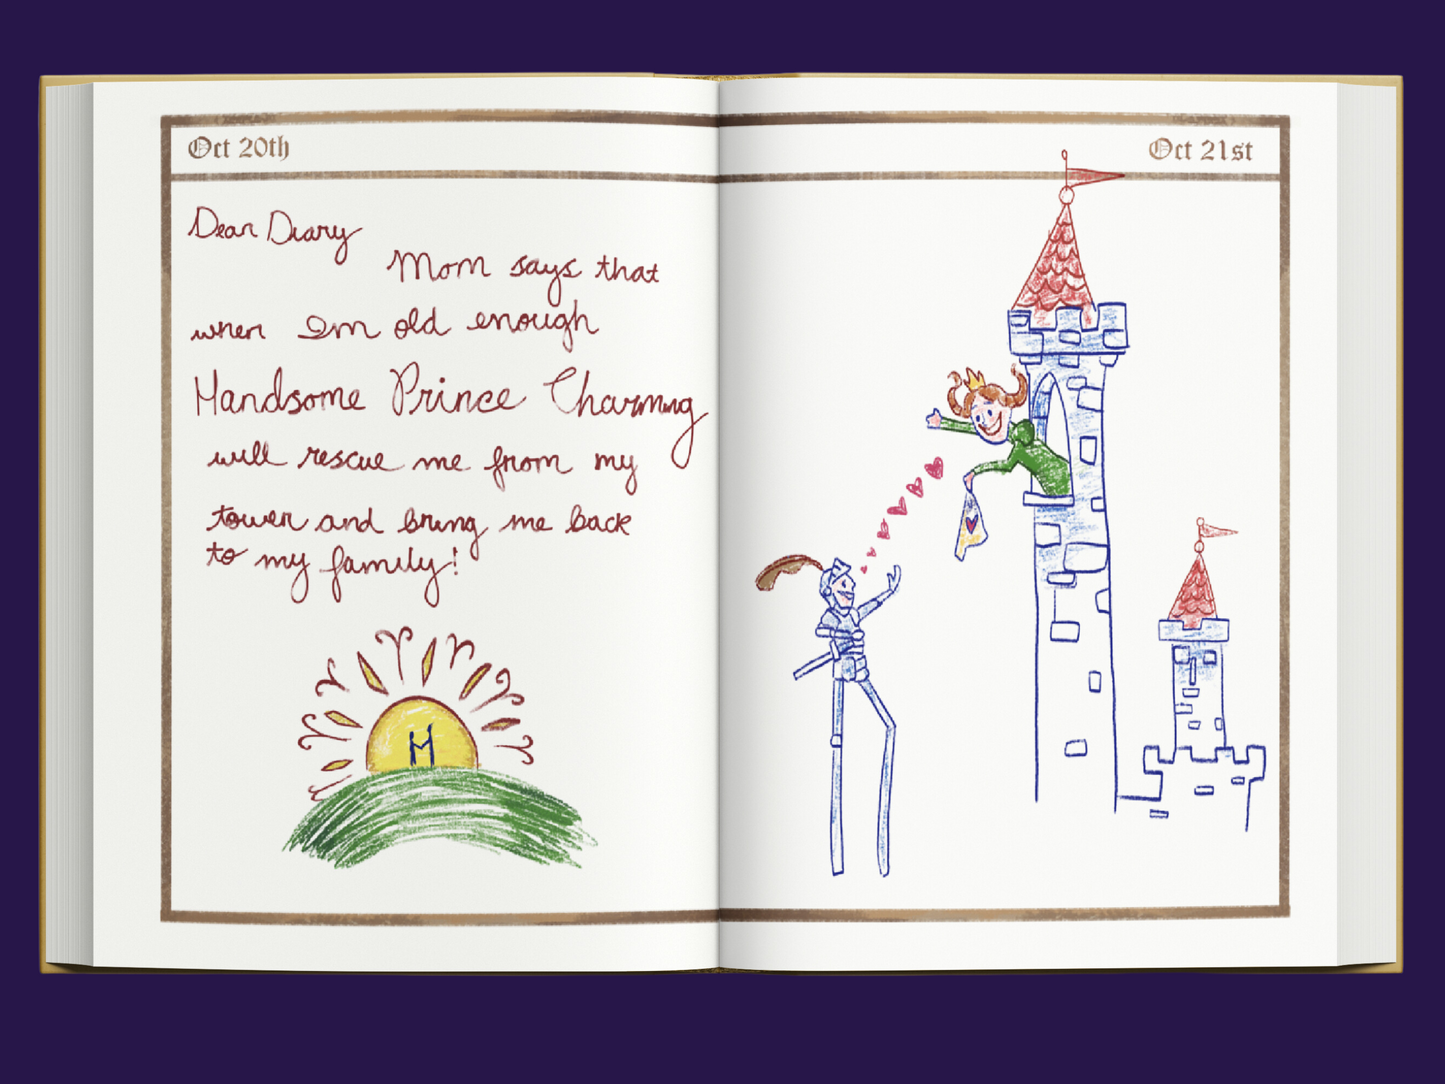 Oct 20th
Dear Diary
Mom says that
when Im old enough
Handsome Prince Charming
will rescue me from my
tower and bring me back
to my family!
Oct 21st